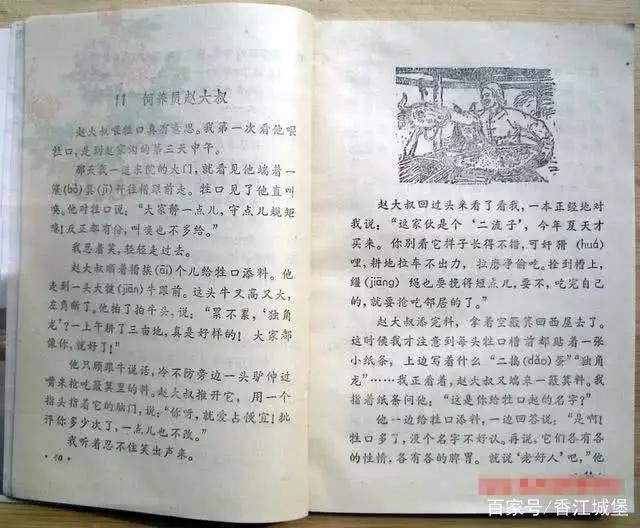 11 饲养员赵大叔
赵大叔喂牲口真有意思。我第一次看他喂
牲口,是到赵家沟的第三天中午。
那天我一进东院的大门,就看见他端着一
簸(bò)萁(jī)料往槽跟前走。牲口见了他直叫
唤。他对牲口说:“大家静一点儿,守点儿规矩
嘛!反正都有份,叫唤也不多给。”
我忍着笑,轻轻走过去。
赵大叔顺着槽挨(āi)个儿给牲口添料。他
走到一头大犍(jiān)牛跟前。这头牛又高又大,
左角断了。他拍了拍牛头,说:“累不累,‘独角
龙’?一上午耕了三亩地,真是好样的! 大家都
像你,就好了!”
他只顾跟牛说话,冷不防旁边一头驴伸过
嘴来抢吃簸萁里的料。赵大叔推开它,用一个
指头指着它的脑门,说:“你呀,就爱占便宜!批
评你多少次了,一点儿也不改。”
我听着忍不住笑出声来。
·40·
赵大叔回过头来看了看我,一本正经地对
我说:“这家伙是个‘二流子’,今年夏天才
买来。你别看它样子长得不错,可奸猾(huá)
哩,耕地拉车不出力,拉磨净偷吃。拴到槽上,
缰(jiāng)绳也要挽得短点儿,要不,吃完自己
的,就要抢吃邻居的了。”
赵大叔添完料,拿着空簸箕回西屋去了。
这时候我才注意到每头牲口槽前都贴着一张
小纸条,上边写着什么“二捣(dǎo)蛋”“独角
龙”……我正看着,赵大叔又端来一簸箕料。我
指着纸条问他:“这是你给牲口起的名字?”
他一边给牲口添料,一边回答说:“是啊!
牲口多了,没个名字不好认。再说,它们各有各
的性情,各有各的脾胃。就说‘老好人’吧,”他
百家号/香江城堡